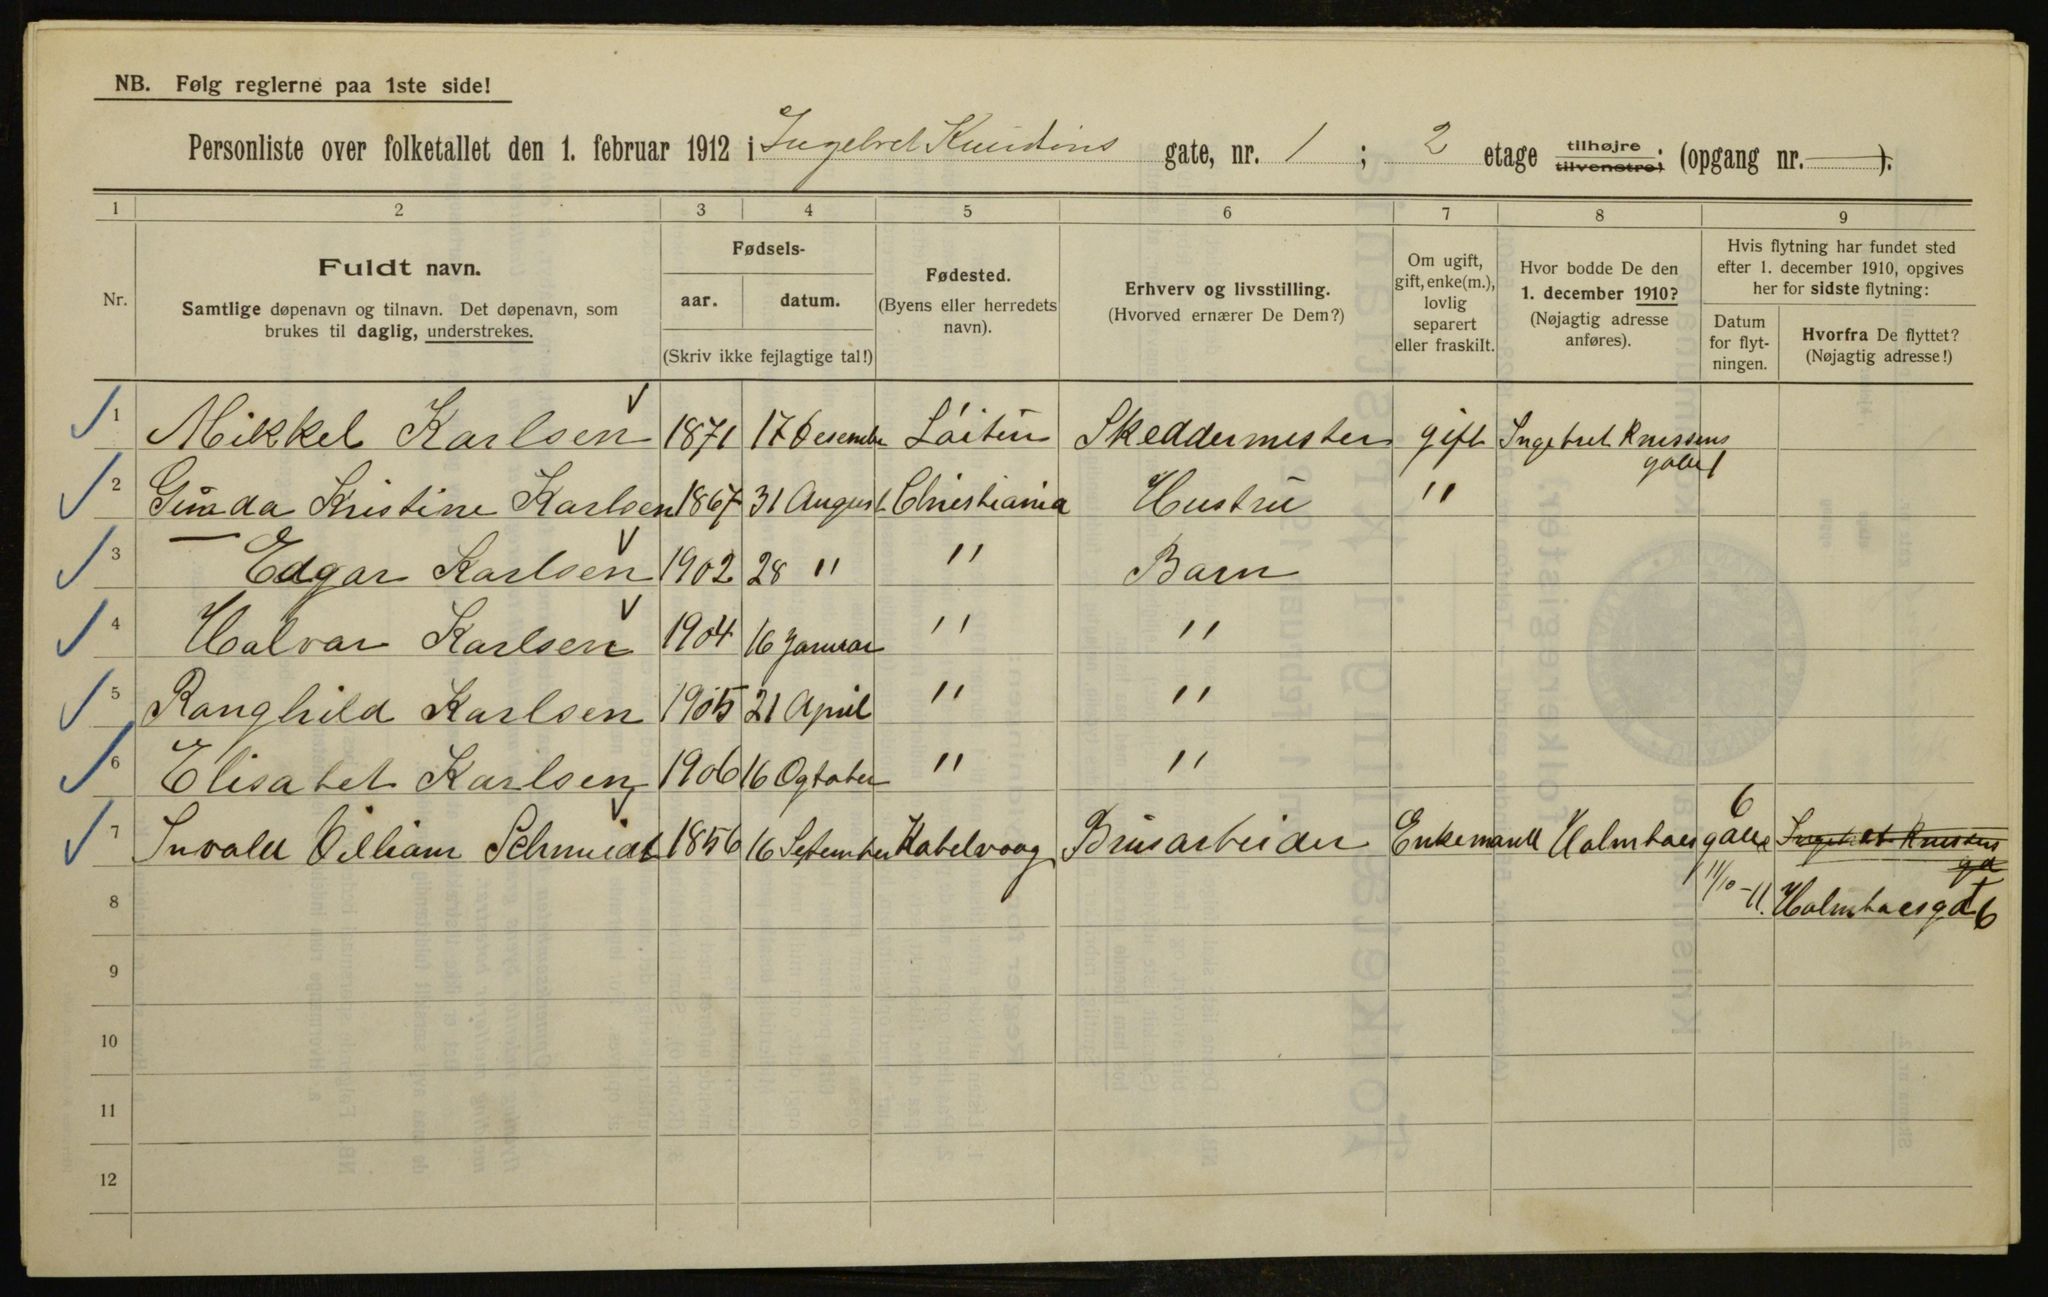 NB. Følg reglerne paa 1ste side!
Personliste over folketallet den 1. februar 1912 i Ingebret Knudsens gate, nr. 1 ; 2 etage tilhøjre tilvenstre; (opgang nr. — ).
1 2 3 4 5 6 7 8 9
Nr.
Fuldt navn.
Samtlige døpenavn og tilnavn. Det døpenavn, som
brukes til daglig, understrekes.
Fødsels-
aar. datum.
(Skriv ikke fejlagtige tal!)
Fødested.
(Byens eller herredets
navn).
Erhverv og livsstilling.
(Hvorved ernærer De Dem?)
Om ugift,
gift, enke(m.),
lovlig
separert
eller fraskilt.
Hvor bodde De den
1. december 1910?
(Nøjagtig adresse
anføres).
Hvis flytning har fundet sted
efter 1. december 1910, opgives
her for sidste flytning:
Datum
for flyt-
ningen.
Hvorfra De flyttet?
(Nøjagtig adresse!)
1 Mikkel Karlsen 1871 17 Desember Löiten Skeddermester gift Ingebret Knussens
gate 1
2 Gunda Kristine Karlsen 1867 31 August Christiania Hustru "
3 Edgar Karlsen 1902 28 " " Barn
4 Halvar Karlsen 1904 16 Januar " "
5 Ranghild Karlsen 1905 21 April " "
6 Elisabet Karlsen 1906 16 Ogtober " "
7 Invald Villiam Schmidt 1856 16 September Kabelvaag Brusarbeider Enkemand Holmboesgate 6 Ingebret Knussens
gd
8 11/10-11. Holmboesgd 6
9
10
11
12